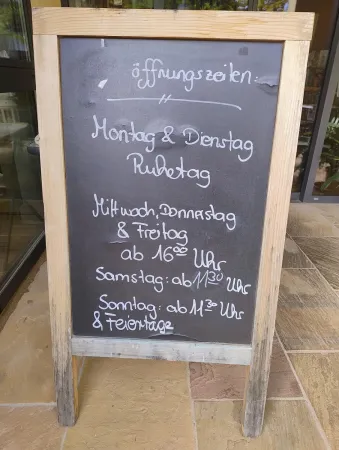 Öffnungszeiten:
Montag & Dienstag
Ruhetag
Mittwoch, Donnerstag
& Freitag
ab 16⁰⁰ Uhr
Samstag: ab 11³⁰ Uhr
Sonntag: ab 11³⁰ Uhr
& Feiertage